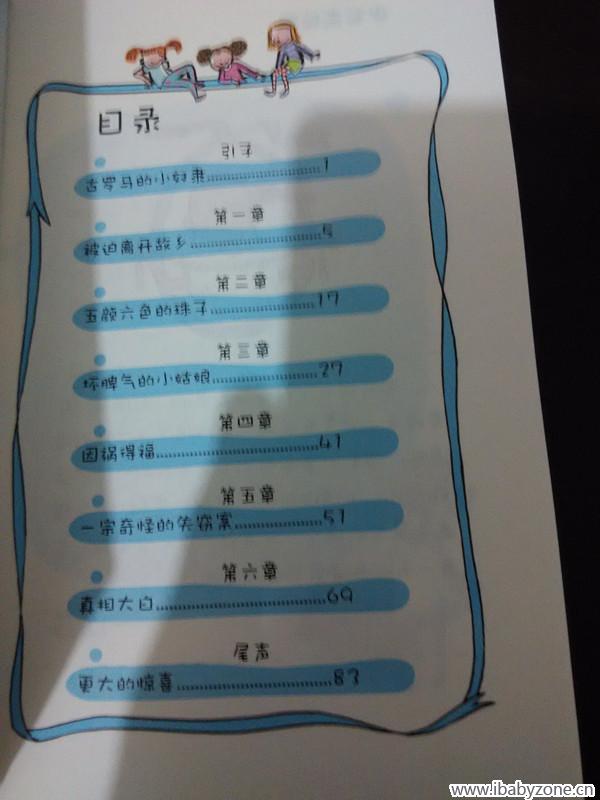 目录
引子
古罗马的小奴隶............................1
第一章
被迫离开故乡............................5
第二章
五颜六色的珠子............................17
第三章
坏脾气的小姑娘............................29
第四章
因祸得福............................41
第五章
一宗奇怪的失窃案............................51
第六章
真相大白............................69
尾声
更大的惊喜............................83
www.ibabyzone.cn